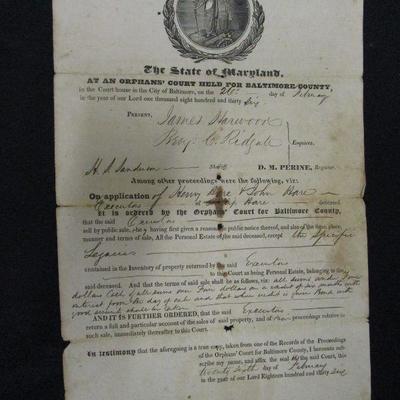 The State of Maryland,
AT AN ORPHANS' COURT HELD FOR BALTIMORE COUNTY,
in the Court house in the City of Baltimore, on the 26 day of February
in the year of our Lord one thousand eight hundred and thirty Six
PRESENT,
James Harwood
Benj. C. Ridgate
Esquires.
H. S. Sanderson Sheriff D. M. PERINE, Register.
Among other proceedings were the following, viz:
On application of Henry Hare & John Hare
Executors of Hare deceased.
It is ordered by the Orphans' Court for Baltimore County,
that the said Executors
sell by public sale, having first given reasonable public notice thereof, and also of the time, place,
manner and terms of sale, All the Personal Estate of the said deceased, except the Specific
Legacies
contained in the Inventory of property returned by the said Executors
to this Court as being Personal Estate, belonging to the
said deceased. And that the terms of said sale shall be as follows, viz: all sums under
dollars Cash, of all sums over dollars on a credit of six months with
interest from the day of sale and that when credit is given Bond with
good security shall be taken
AND IT IS FURTHER ORDERED, that the said Executors
return a full and particular account of the sales of said property, and of proceedings relative to
such sale, immediately thereafter to this Court.
In testimony that the aforegoing is a true copy, taken from one of the Records of the Proceedings
of the Orphans' Court for Baltimore County, I hereunto sub-
scribe and affix the seal of the said Court, this
twenty Sixth day of February
in the year of our Lord Eighteen Hundred and thirty Six